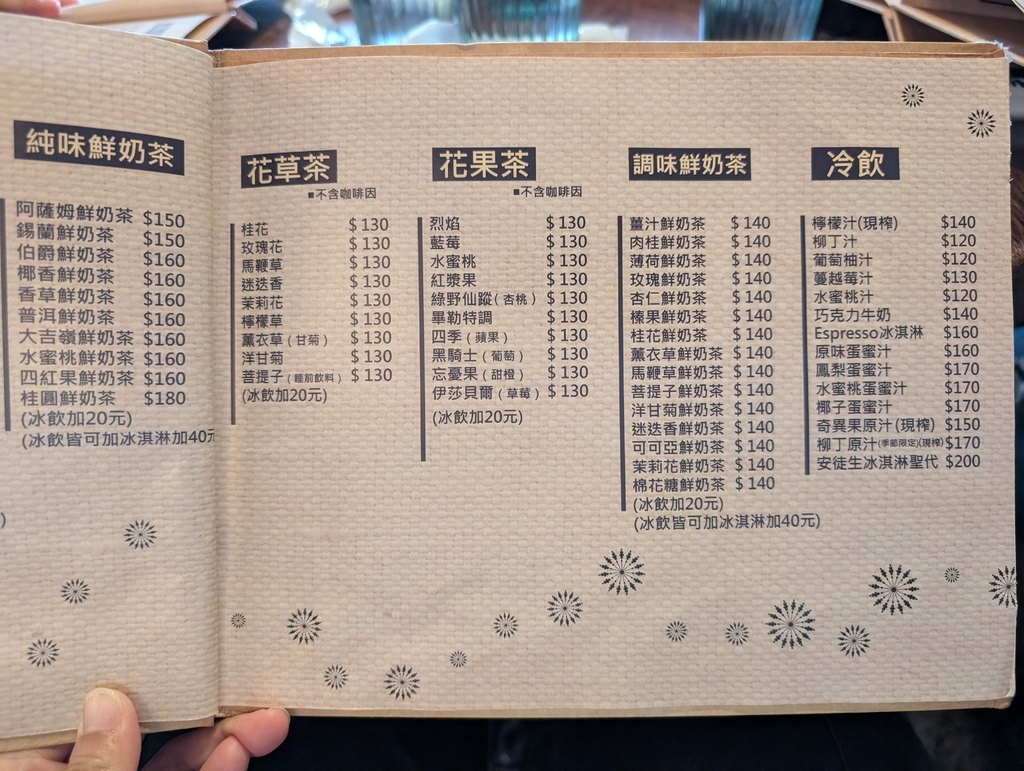 純味鮮奶茶
阿薩姆鮮奶茶 $150
錫蘭鮮奶茶 $150
伯爵鮮奶茶 $160
椰香鮮奶茶 $160
香草鮮奶茶 $160
普洱鮮奶茶 $160
大吉嶺鮮奶茶 $160
水蜜桃鮮奶茶 $160
四紅果鮮奶茶 $160
桂圓鮮奶茶 $180
(冰飲加20元)
(冰飲皆可加冰淇淋加40元
)
花草茶
■不含咖啡因
桂花 $130
玫瑰花 $130
馬鞭草 $130
迷迭香 $130
茉莉花 $130
檸檬草 $130
薰衣草(甘菊) $130
洋甘菊 $130
菩提子(睡前飲料) $130
(冰飲加20元)
花果茶
■不含咖啡因
烈焰 $130
藍莓 $130
水蜜桃 $130
紅漿果 $130
綠野仙蹤(杏桃) $130
畢勒特調 $130
四季(蘋果) $130
黑騎士(葡萄) $130
忘憂果(甜橙) $130
伊莎貝爾(草莓) $130
(冰飲加20元)
調味鮮奶茶
薑汁鮮奶茶 $140
肉桂鮮奶茶 $140
薄荷鮮奶茶 $140
玫瑰鮮奶茶 $140
杏仁鮮奶茶 $140
榛果鮮奶茶 $140
桂花鮮奶茶 $140
薰衣草鮮奶茶 $140
馬鞭草鮮奶茶 $140
菩提子鮮奶茶 $140
洋甘菊鮮奶茶 $140
迷迭香鮮奶茶 $140
可可亞鮮奶茶 $140
茉莉花鮮奶茶 $140
棉花糖鮮奶茶 $140
(冰飲加20元)
(冰飲皆可加冰淇淋加40元)
冷飲
檸檬汁(現榨) $140
柳丁汁 $120
葡萄柚汁 $120
蔓越莓汁 $130
水蜜桃汁 $120
巧克力牛奶 $140
Espresso冰淇淋 $160
原味蛋蜜汁 $160
鳳梨蛋蜜汁 $170
水蜜桃蛋蜜汁 $170
椰子蛋蜜汁 $170
奇異果原汁(現榨) $150
柳丁原汁(季節限定)(現榨) $170
安徒生冰淇淋聖代 $200